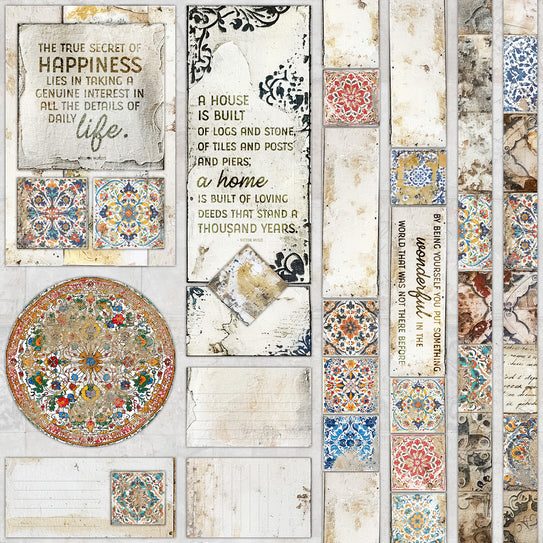 THE TRUE SECRET OF
HAPPINESS
LIES IN TAKING A
GENUINE INTEREST IN
ALL THE DETAILS OF
DAILY life.
A HOUSE
IS BUILT
OF LOGS AND STONE,
OF TILES AND POSTS
AND PIERS;
a home
IS BUILT OF LOVING
DEEDS THAT STAND A
THOUSAND YEARS.
- VICTOR HUGO
BY BEING YOURSELF YOU PUT SOMETHING
wonderful IN THE
WORLD THAT WAS NOT THERE BEFORE